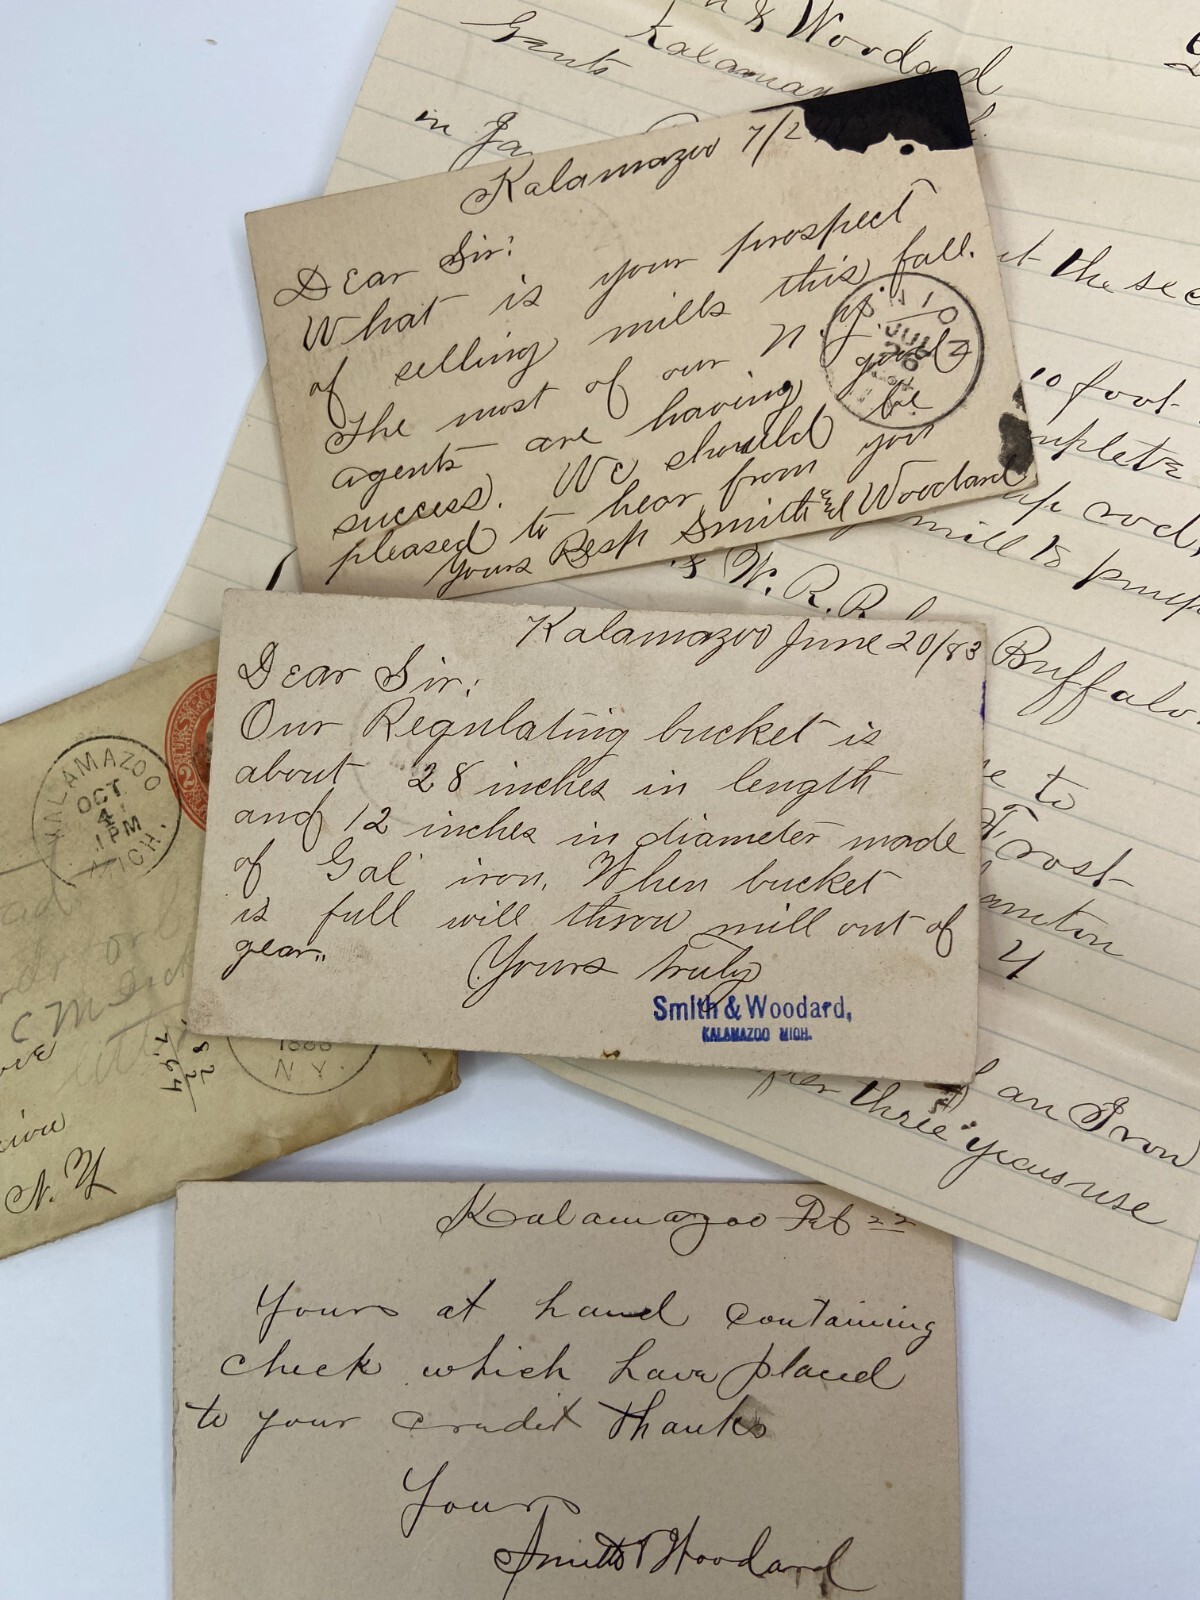 & Woodard
Kalamaz
Gents
in Ja
Kalamazoo 7/2
Dear Sir:
What is your prospect
of selling mills this fall.
The most of our N.Y.
agents are having good
success. We should be
pleased to hear from you
Yours Resp Smith and Woodard
JUL
26
t the sec
10 foot
mplete
rod,
mill to pump
& W. R.R.
Buffalo.
to
Frost
4
an Iron
three years use
Kalamazoo June 20/83
Dear Sir:
Our Regulating bucket is
about 28 inches in length
and 12 inches in diameter made
of Gal' iron. When bucket
is full will throw mill out of
gear.
Yours truly
Smith & Woodard,
KALAMAZOO MICH.
KALAMAZOO
OCT
4
1 PM
MICH.
N.Y.
82
7.64
N.Y
Kalamazoo Feb 22
Yours at hand containing
check which have placed
to your credit Thanks
Yours
Smith & Woodard